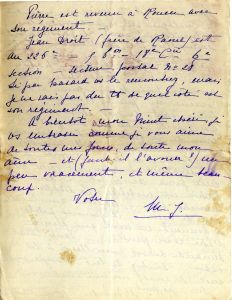 Pierre est revenu à Rouen avec
son régiment.
Jean Droit (frère de Raoul) est
au 226e - 6e
section - secteur postal
Si par hasard vs le rencontrez, mais
je ne sais pas du tt de quel côté est
son régiment -
A bientôt mon Minet chéri, je
vs embrasse comme je vous aime
de toutes mes forces, de toute mon
âme - et (faut-il l'avouer?) un
peu voracement, et même beau-
coup.
Votre